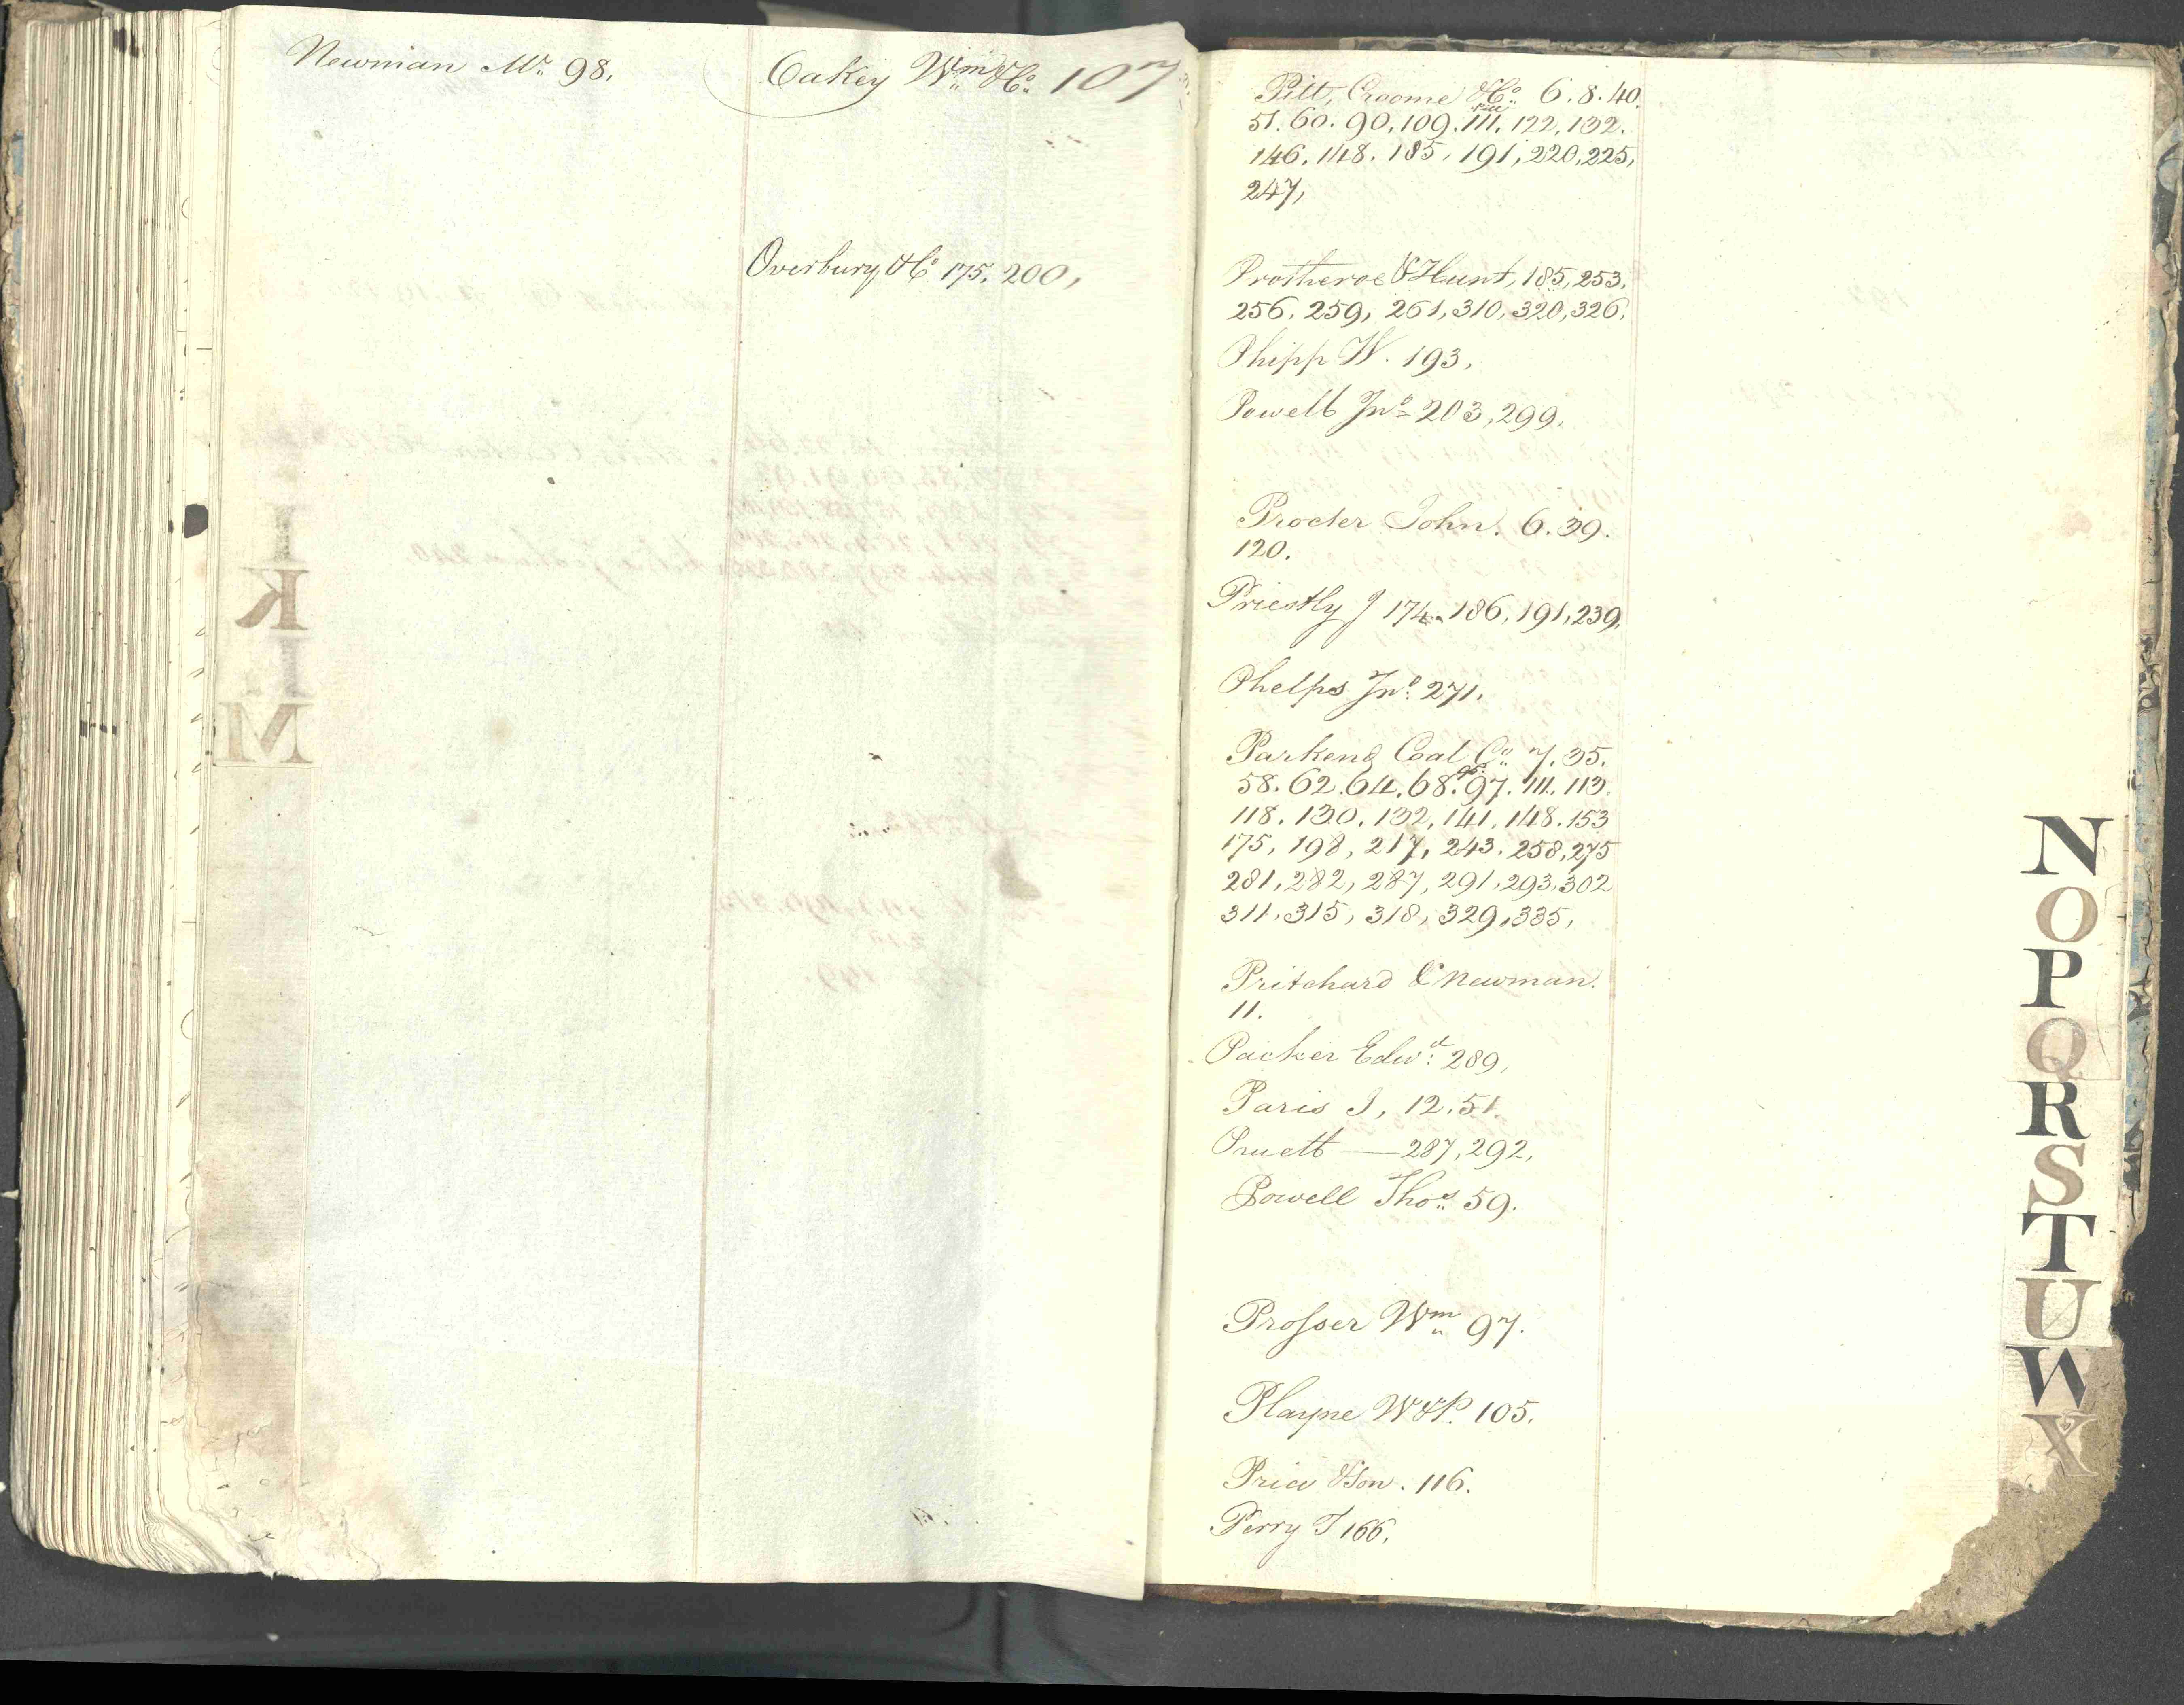 Newman Mr. 98.
Oakey Wm & Co. 107
Overbury & Co 175. 200,
Pitt, Croome & Co. 6. 8. 40.
Pitt
51. 60. 90. 109. 111. 122, 132.
146. 148. 185. 191, 220, 225,
247,
Protheroe & Hunt, 185, 253,
256. 259, 261, 310, 320, 326,
Phipp W. 193,
Powell Jno 203, 299,
Procter John. 6. 39.
120.
Priestly J 174. 186, 191, 239,
Phelps Jno. 271.
Parkend Coal Co. 7. 35.
58. 62. 64. 68. 97. 111. 113.
118. 130. 132, 141. 148. 153
175, 198, 217, 243. 258, 275
281, 282, 287, 291, 293, 302
311, 315, 318, 329, 335,
Pritchard & Newman.
11.
Packer Edwd. 289,
Paris J, 12. 51.
Pruett — 287, 292,
Powell Thos. 59.
Prosser Wm 97.
Playne W & P. 105.
Price & Son. 116.
Perry T 166.
N
O
P
Q
R
S
T
U
W
X
K
M